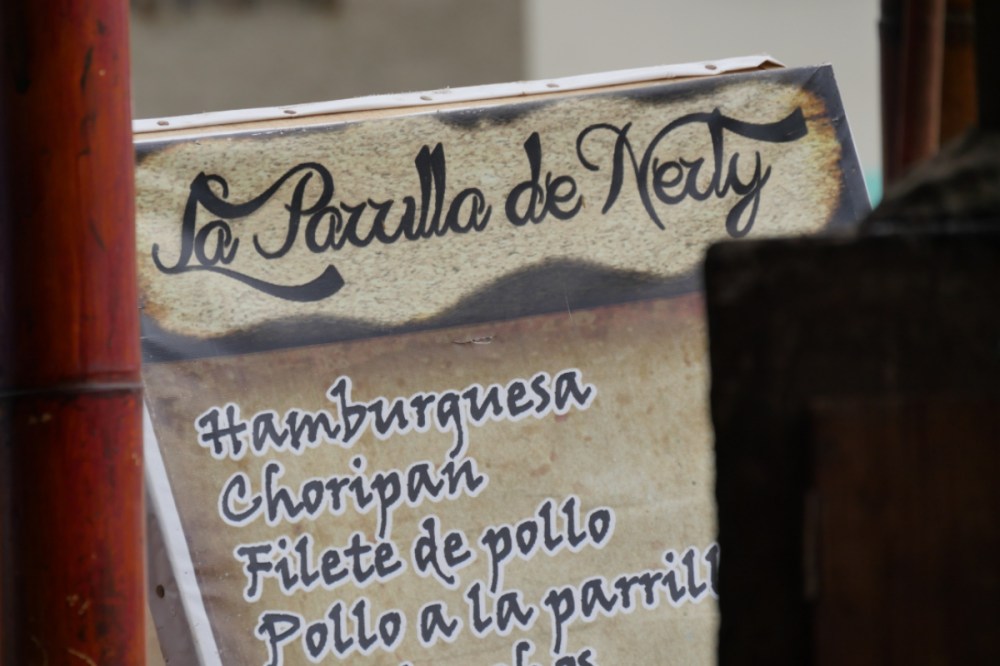 La Parrilla de Nerly
Hamburguesa
Choripan
Filete de pollo
Pollo a la parrill